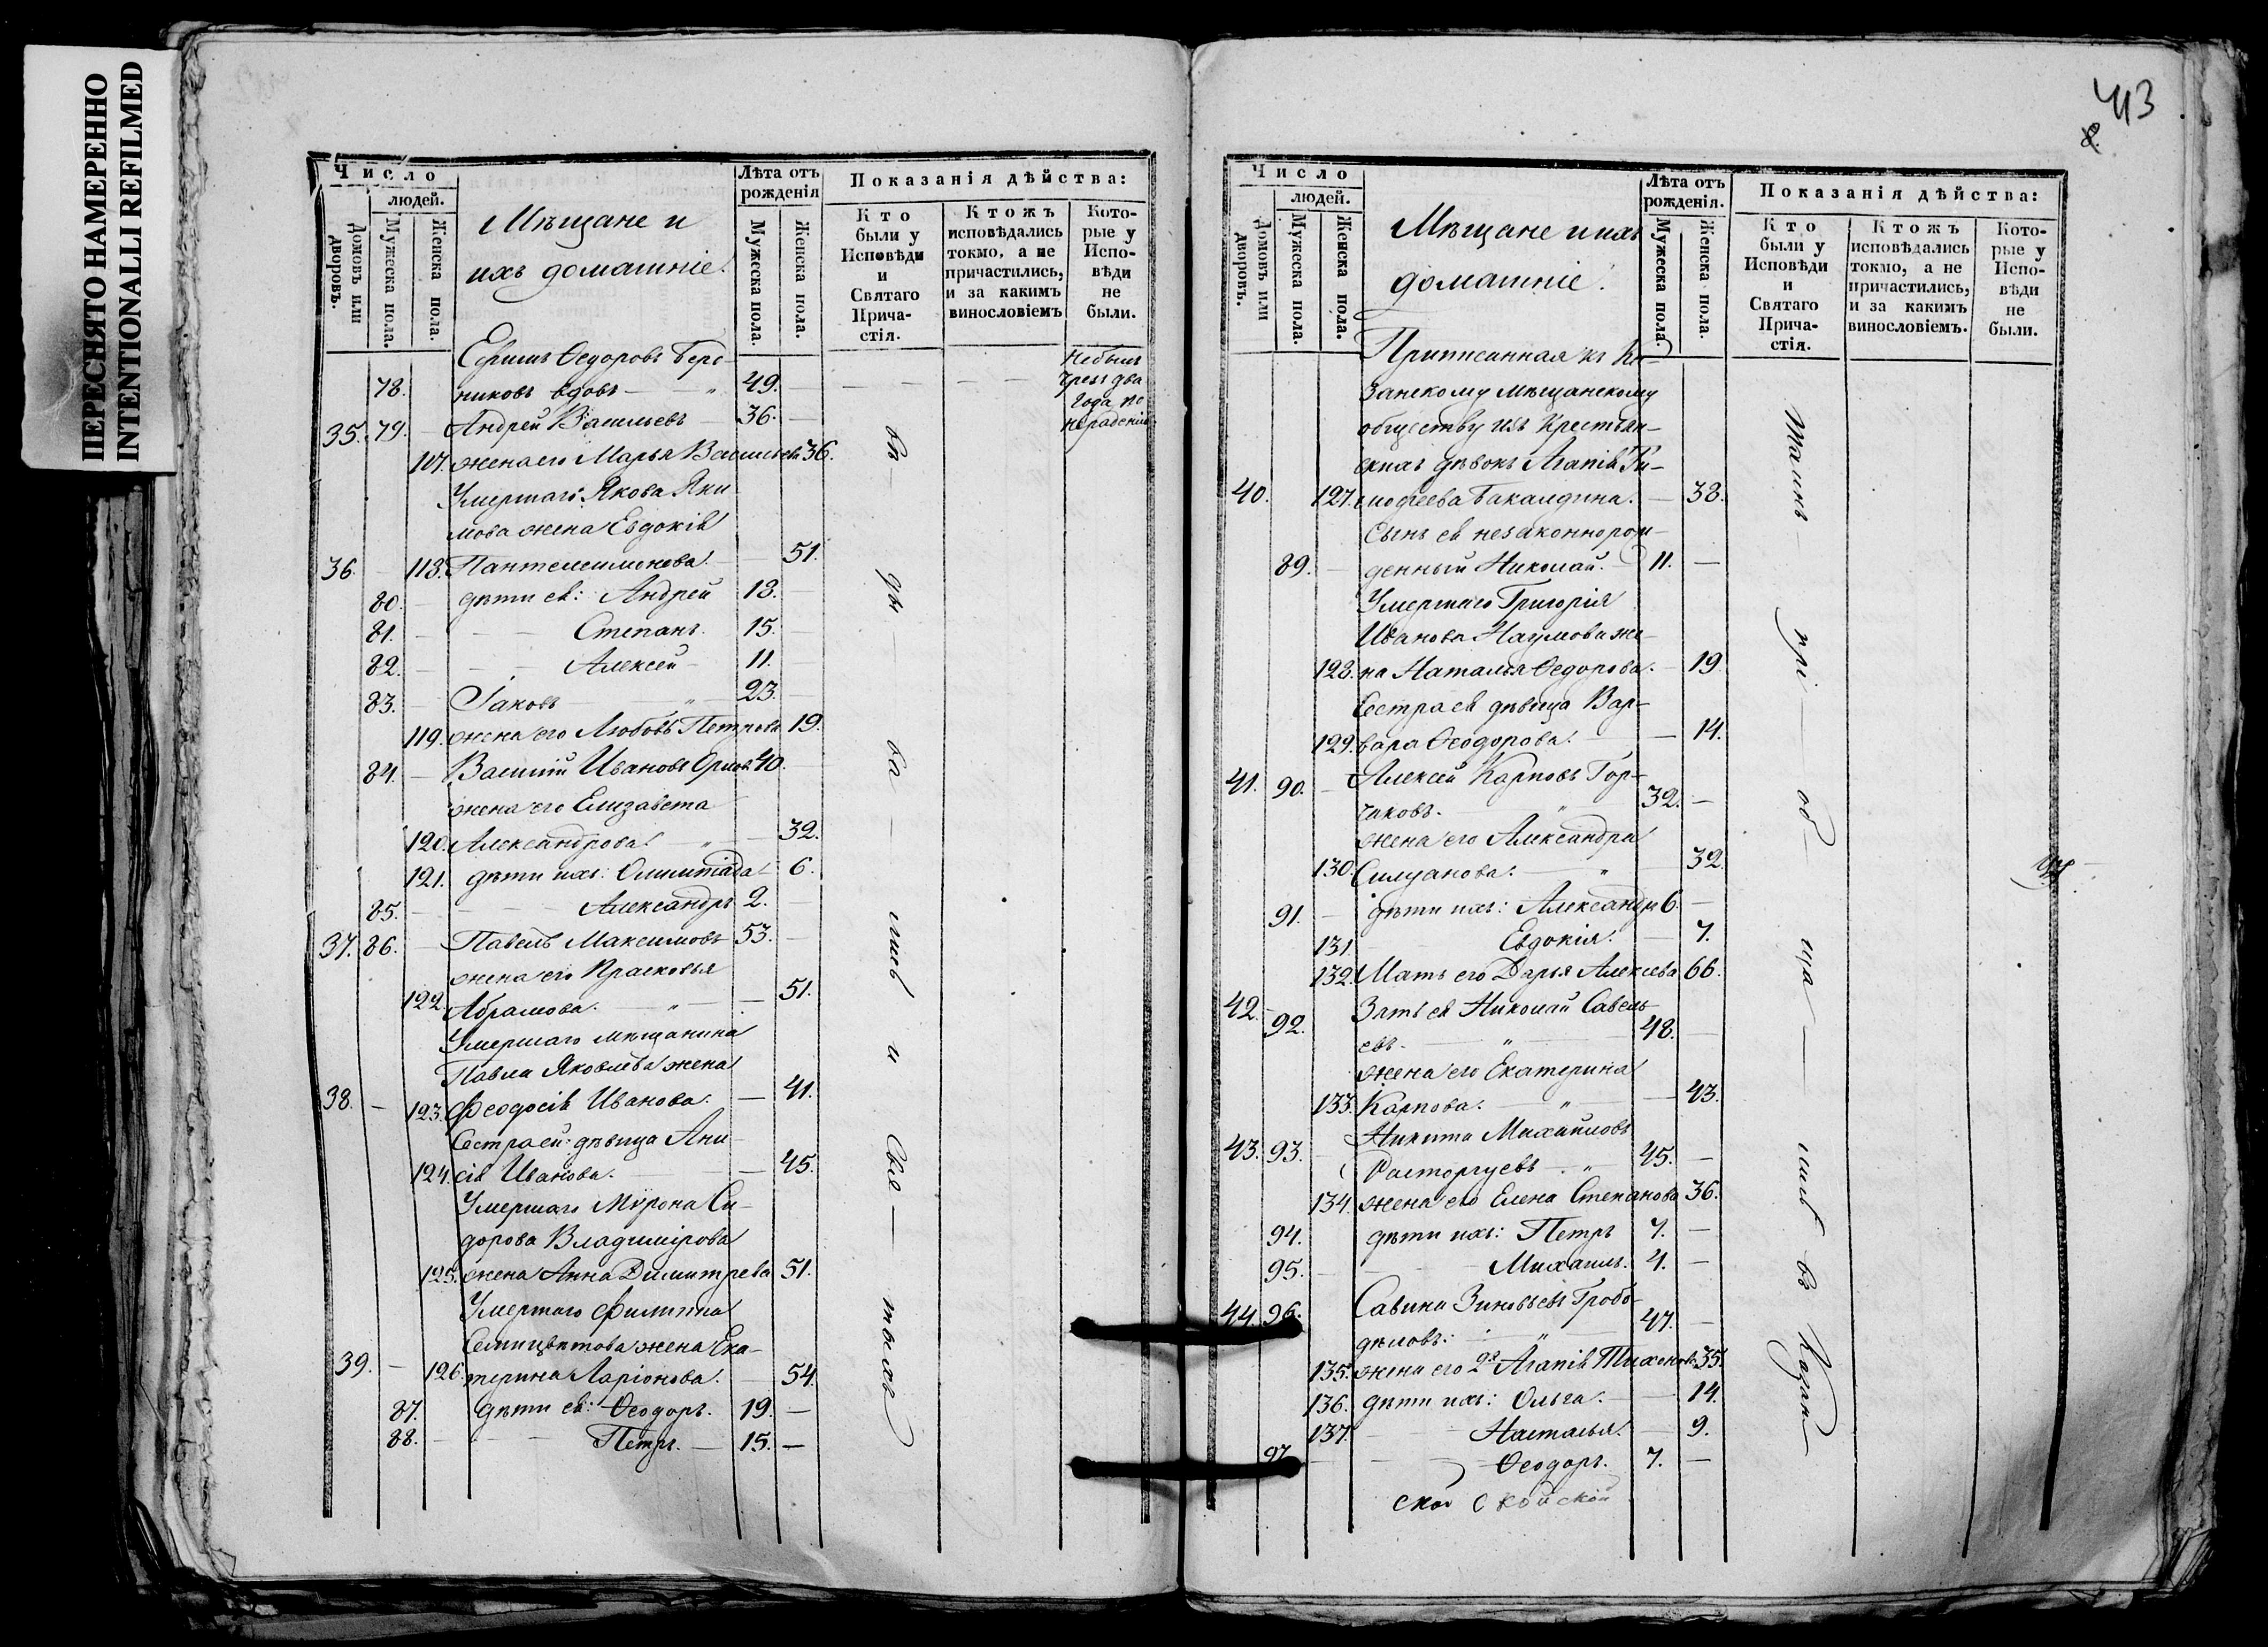 ПЕРЕСНЯТО НАМЕРЕННО
INTENTIONALLI REFILMED
Число
людей.
Домовъ или дворовъ.
Мужеска пола.
Женска пола.
Мѣщане и
ихъ домашніе.
Лѣта отъ рожденія
Мужеска пола.
Женска пола.
Показанія дѣйства:
Кто были у Исповѣди и Святаго Прича-стія.
Ктожъ исповѣдались токмо, а не причастились, и за какимъ винословіемъ
Кото-рые у Испо-вѣди не были.
Ефимъ Ѳедоровъ
78. никовъ вдовъ — „ 49. —
Небылъ
чрезъ два
года по
нерадению
35. 79. — Андрей Васильевъ — 36. —
117. жена его Марья Васильева 36.
Умершаго Якова Яки
мова жена Евдокія
36. — 118. Пантелеимонова. — 51.
80. — дѣти ея: Андрей 18. —
81. — — — Степанъ. 15. —
82. — — — Алексѣй — 11. —
83. — Іаковъ — „ — 23. —
119. жена его Любовь Петрова 19.
84. — Василій Ивановъ Орловъ 40. —
жена его Елизавета
120. Александрова. — „ — 32.
121. дѣти ихъ: Олимпіада — 6.
85. — — — Александръ 2. —
37. 86. — Павелъ Максимовъ 53. —
жена его Прасковья
122. Абрамова. — „ — 51.
Умершаго мѣщанина
Павла Яковлева жена
38. — 123. Феодосія Иванова. — 41.
Сестра ей: дѣвица Ани
124. сія Иванова. — 45.
Умершаго Мѵрона Си-
дорова Владимірова
125. жена Анна Димитрева 51.
Умершаго Филиппа
Семицвѣтова жена Ека-
39. — 126. терина Ларіонова. — 54.
87. дѣти ея: Ѳеодоръ. 19. —
88. — — — Петръ. — 15. —
въ — ды — ва — лись и Свя — тыхъ
413
8.
Число
людей.
Домовъ или дворовъ.
Мужеска пола.
Женска пола.
Мѣщане и ихъ
домашніе.
Лѣта отъ рожденія.
Мужеска пола.
Женска пола.
Показанія дѣйства:
Кто были у Исповѣди и Святаго Прича-стія.
Ктожъ исповѣдались токмо, а не причастились, и за какимъ винословіемъ.
Кото-рые у Испо-вѣди не были.
Приписанная къ Ка-
занскому мѣщанскому
обществу изъ крестьян-
скихъ дѣвокъ Агапія Ти-
40. 127. моѳеева Бакалдина. — 38.
Сынъ ея незаконнорож-
89. — денный Николай. — 11. —
Умершаго Григорія
Иванова Наумова же-
128. на Наталья Ѳедорова. — 19.
Сестра ея дѣвица Вар-
129. вара Ѳеодорова. — 14.
41. 90. — Алексѣй Карповъ Гор-
чаковъ. — „ — 32. —
жена его Александра
130. Силуанова. — „ — 32.
91. — дѣти ихъ: Александръ 6. —
131. Евдокія. — 7.
132. Мать его Дарья Алексѣева 66.
42. — 92. Зять ея Николай Савель-
евъ. — „ — 48. —
жена его Екатерина
133. Карпова. — „ — 43.
43. 93. — Никита Михайловъ
Расторгуевъ — „ 45. —
134. жена его Елена Степанова 36.
94. дѣти ихъ: Петръ 7. —
95. — — — Михаилъ. 4. —
44. 96. Савина Зиновьевъ Гробо-
дѣловъ. — „ — 47. —
135. жена его 2я Агапія Тихонова 35.
136. дѣти ихъ: Ольга. — 14.
137. — — Наталья. — 9.
97. — — — Ѳеодоръ. 7. —
таинъ — прі — об — ща — лись въ Казан
ской